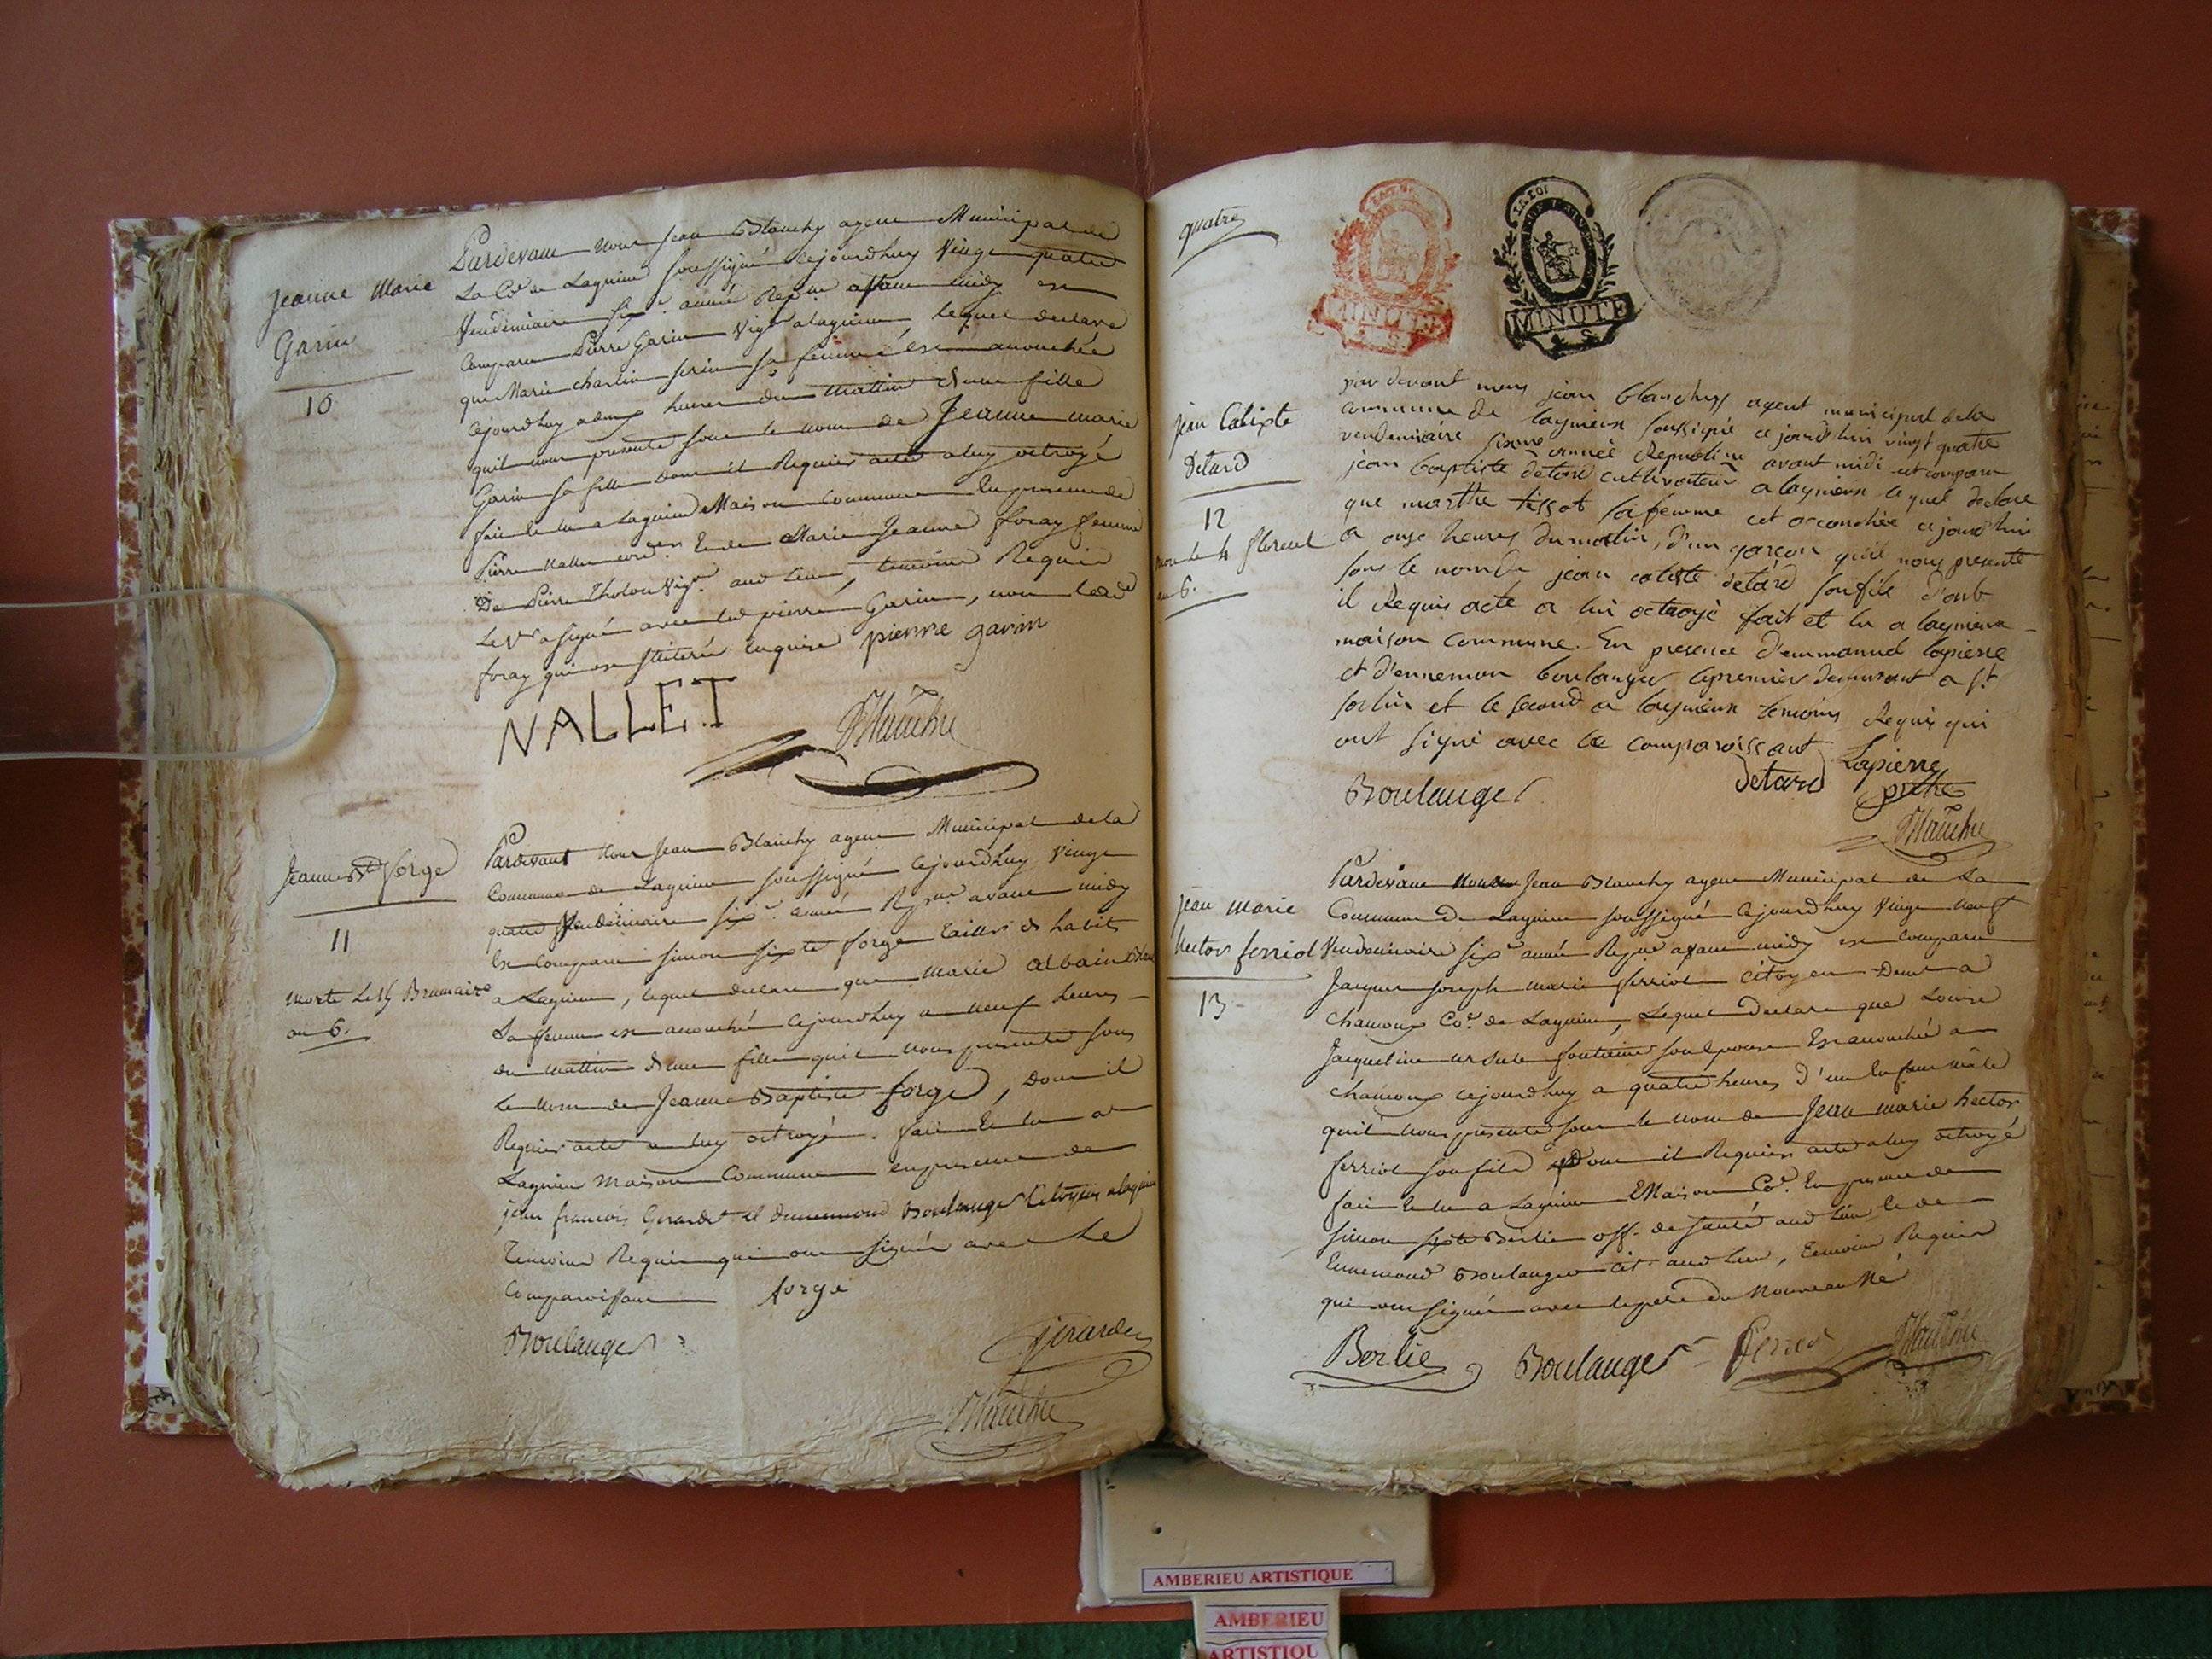 Jeanne Marie
Garin
10
Pardevant nous Jean Blanchy agent Municipal de
La Co.e de Lagnieu soussigné cejourdhuy vingt quatre
Vendemiaire six.e année Rep.ne avant midy est
Comparu Pierre Garin Vig.on a lagnieu, lequel declare
que Marie charlin serin sa femme est accouchée
cejourdhuy a deux heures du mattin d'une fille
quil nous presente sous le nom de Jeanne marie
Garin sa fille dont il Requiert acte a luy octroyé
fait et lu a Lagnieu Maison commune En presence de
Pierre Nallet cord.er Et de Marie Jeanne foray femme
De Pierre Tholon Vig.on aud lieu, temoins Requis
Le 1.er a signé avec led pierre Garin, non lade
foray qui est illiterée Enquise pierre garin
NALLET
Blanchy
Jeanne B.te Forge
11
morte Le 15 Brumaire
an 6.
Pardevant Nous Jean Blanchy agent Municipal de la
Commune de Lagnieu soussigné cejourdhuy vingt
quatre Vendemiaire six.e année Rep.ne avant midy
Est comparu simon sixte forge tailleur d habits
a Lagnieu, lequel declare que marie albain
sa femme est accouchée cejourdhuy a neuf heures
du mattin d'une fille quil nous presente sous
le nom de Jeanne Baptiste forge, dont il
Requiert acte a luy octroyé. fait Et lu a
Lagnieu maison Commune en presence de
jean francois Girardet et d'ennemond Boulanger Citoyens a lagnieu
Temoins Requis qui ont signé avec le
Comparoissant forge
Boulanger
girardet
Blanchy
quatre
LA LOI
MINUTE
MINUTE
jean Calixte
Détard
12
mort le 4 floreal
an 6.
par devant nous jean blanchy agent municipal de la
commune de lagnieux soussigné ce jourd'hui vingt quatre
vendemiaire sixme année Republine avant midi est comparu
jean baptiste detard cultivateur a lagnieux lequel declare
que marthe tissot sa femme est accouchée ce jourd'hui
a onze heures du matin, d'un garçon qu'il nous presente
sous le nom de jean calixte detard son fils dont
il Requis acte a lui octroyé fait et lu a lagnieux
maison commune. En presence d'emmanuel lapierre
et d'ennemon boulanger le premier demeurant a s.t
sorlin et le second a lagnieux temoins Requis qui
ont signé avec le comparoissant
Lapierre
Boulanger
detard
prêtre
Blanchy
jean marie
hector ferriol
13
Pardevant Nous Jean Blanchy agent Municipal de La
Commune De Lagnieu soussigné cejourdhuy Vingt Neuf
Vendemiaire six.e année Rep.ne avant midy est comparu
Jacques Joseph marie ferriol citoyen Dem.t a
chamoux Co.e de Lagnieu, Lequel Declare que Louise
Jacqueline ursule son Epouse Est accouchée a
chamoux cejourdhuy a quatre heures d'un Enfant mâle
quil nous presente sous le nom de Jean marie hector
ferriol son fils Dont il Requiert acte a luy octroyé
fait Et lu a Lagnieu Maison Co.e En presence de
simon sixte Berlie off. de santé aud Lieu, Et de
Ennemond Boulanger cit. aud Lieu, Temoins Requis
qui ont signé avec le pere du Nouveau Né
Berlie Boulanger Ferriol Blanchy
AMBERIEU ARTISTIQUE
AMBERIEU
ARTISTIQU